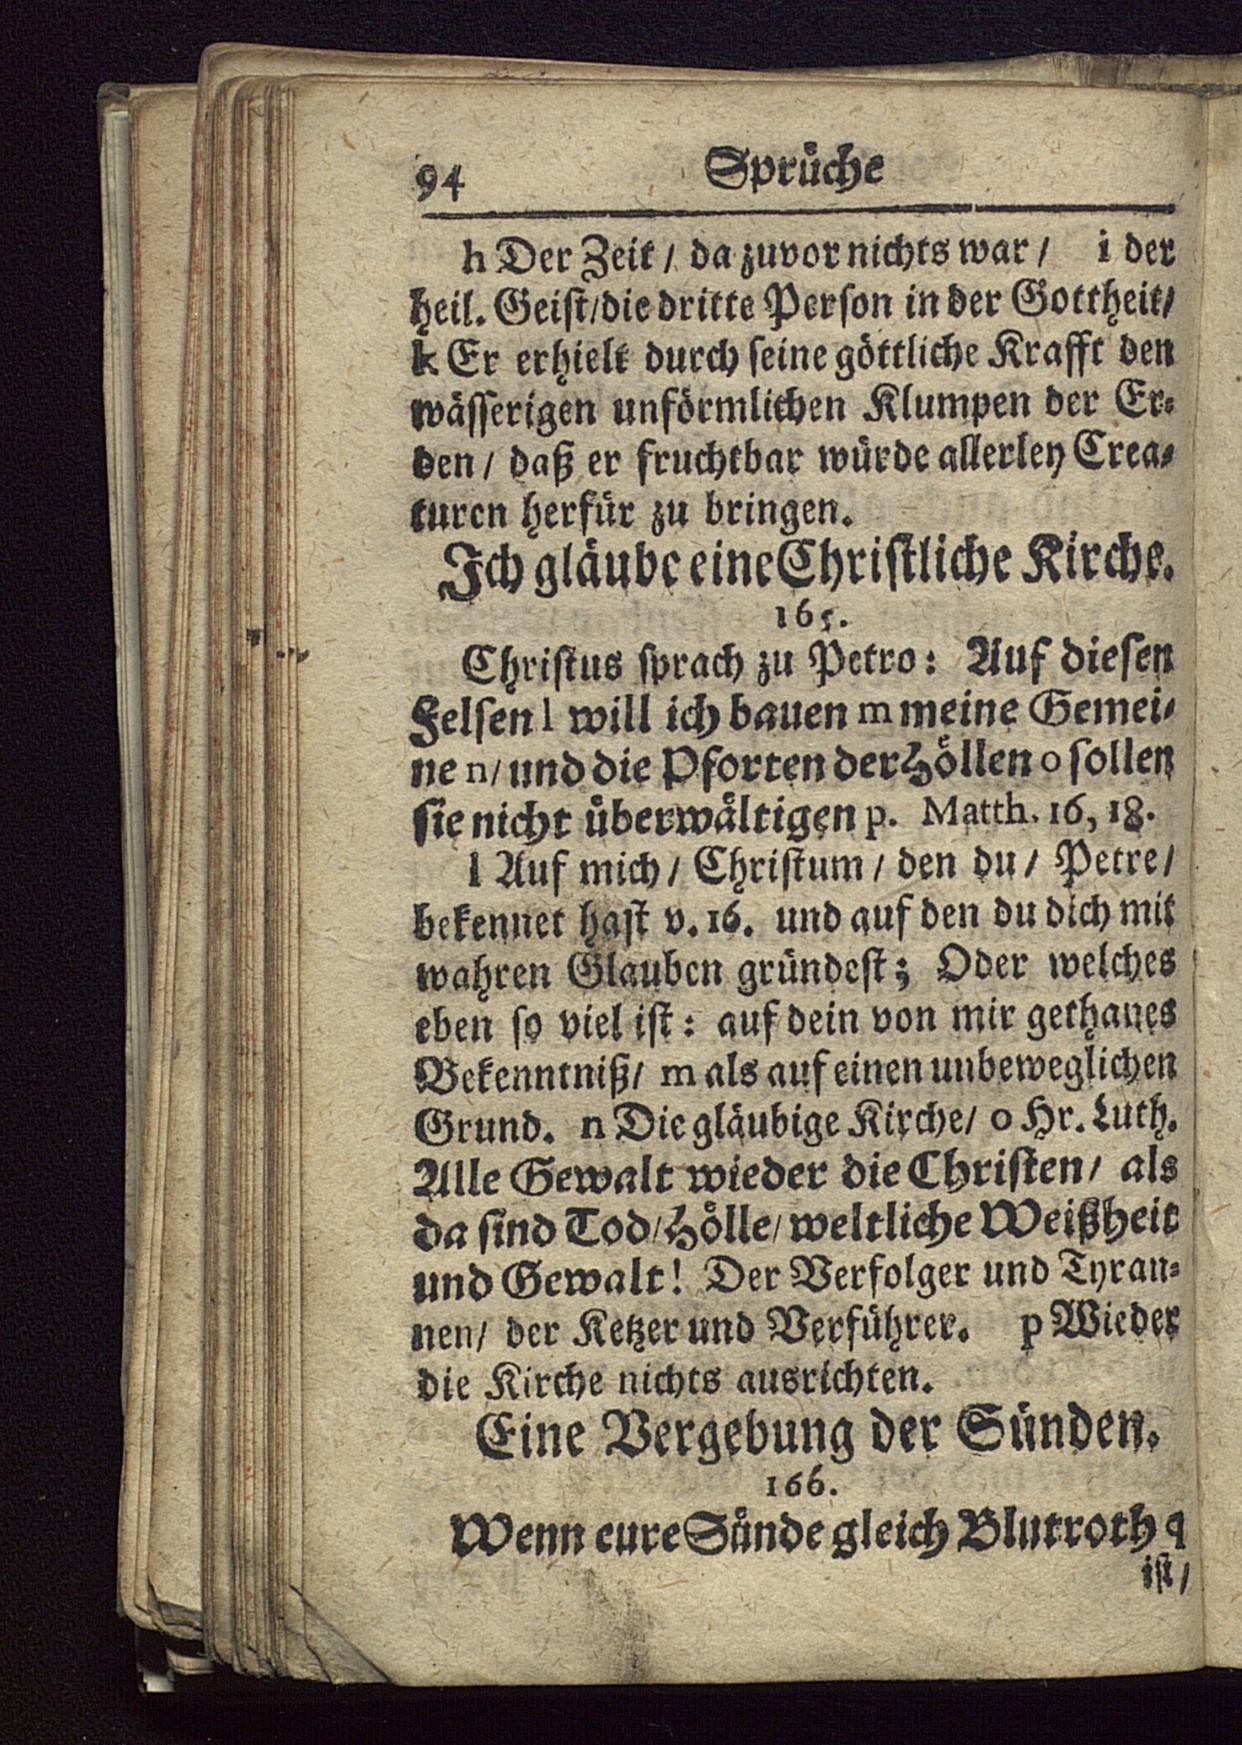 94 Sprüche
h Der Zeit / da zuvor nichts war / i der
heil. Geist/die dritte Person in der Gottheit/
k Er erhielt durch seine göttliche Krafft den
wässerigen unförmlichen Klumpen der Er-
den / daß er fruchtbar würde allerley Crea-
turen herfür zu bringen.
Ich gläube eine Christliche Kirche.
165.
Christus sprach zu Petro: Auf diesen
Felsen l will ich bauen m meine Gemei-
ne n/ und die Pforten der Höllen o sollen
sie nicht überwältigen p. Matth. 16, 18.
l Auf mich / Christum / den du / Petre /
bekennet hast v. 16. und auf den du dich mit
wahren Glauben gründest; Oder welches
eben so viel ist: auf dein von mir gethanes
Bekenntniß/ m als auf einen unbeweglichen
Grund. n Die gläubige Kirche/ o Hr. Luth.
Alle Gewalt wieder die Christen/ als
da sind Tod/Hölle/ weltliche Weißheit
und Gewalt! Der Verfolger und Tyran-
nen/ der Ketzer und Verführer. p Wieder
die Kirche nichts ausrichten.
Eine Vergebung der Sünden.
166.
Wenn eure Sünde gleich Blutroth q
ist /